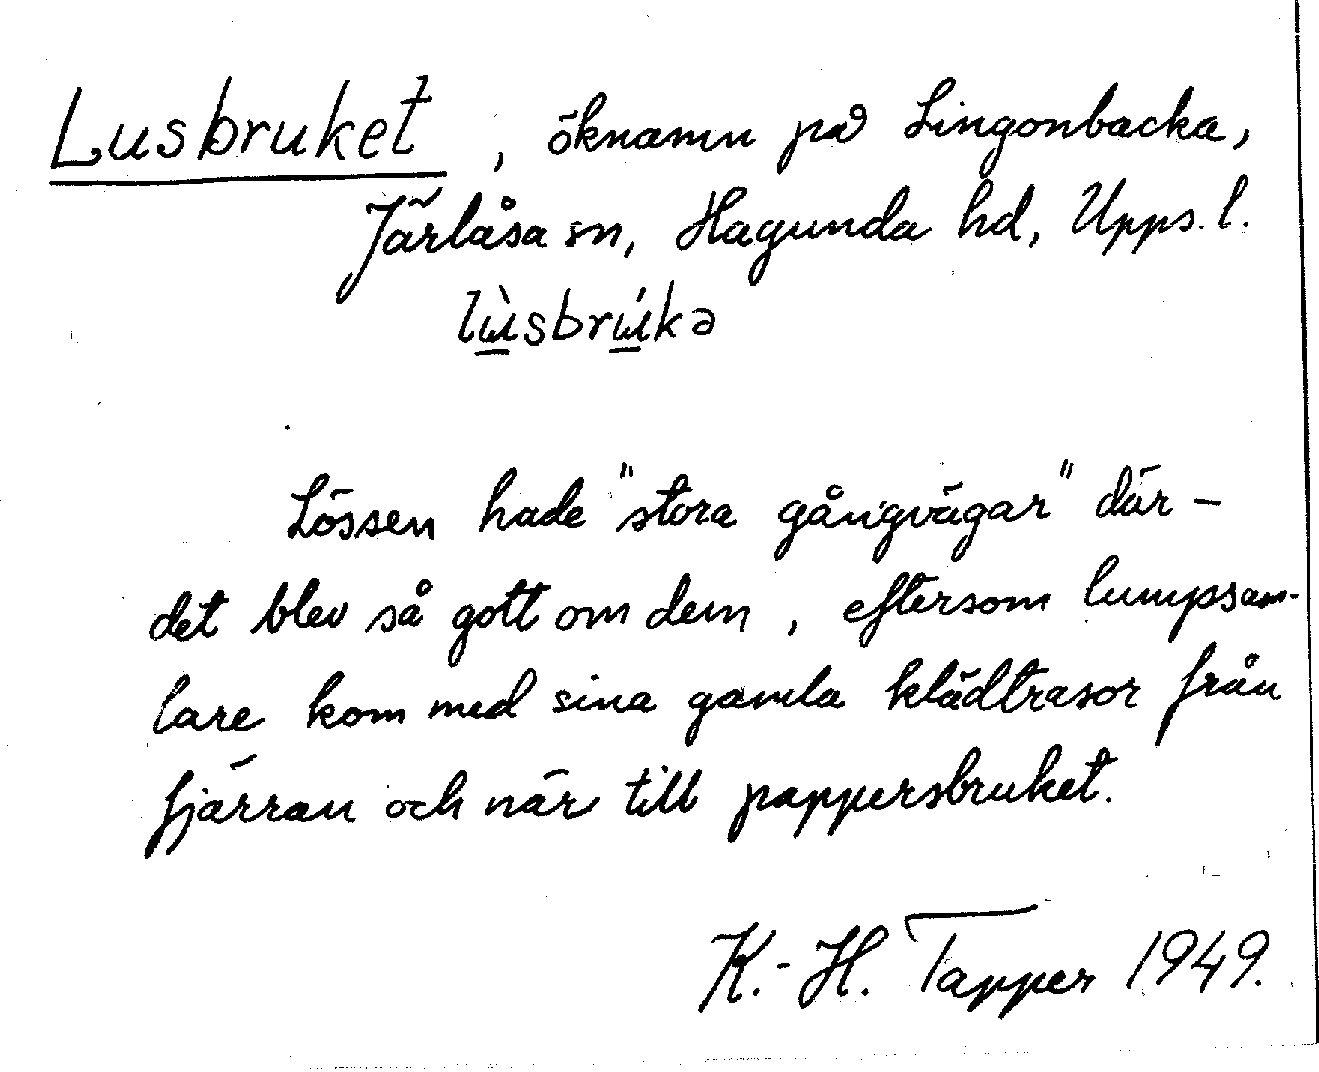 Lusbruket, öknamn på Lingonbacka,
Järlåsa sn, Hagunda hd, Upps. l.
lùsbrúkə
Lössen hade "stora gångvägar" där –
det blev så gott om dem, eftersom lumpsam-
lare kom med sina gamla klädtrasor från
fjärran och när till pappersbruket.
K.-H. Tapper 1949.